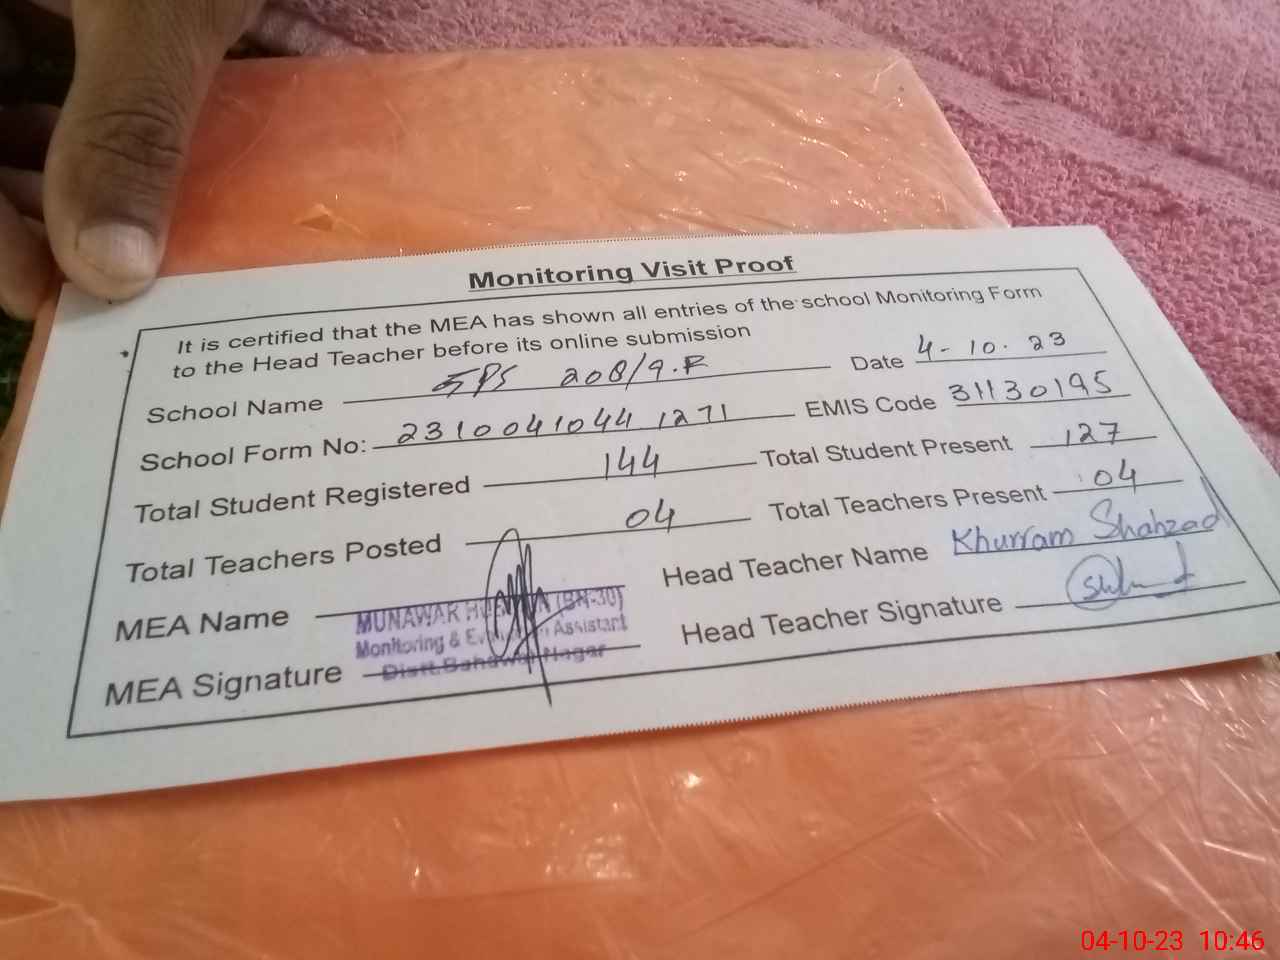 Monitoring Visit Proof
It is certified that the MEA has shown all entries of the school Monitoring Form
to the Head Teacher before its online submission
School Name GPS 208/9.R Date 4-10.23
School Form No: 23100410441271 EMIS Code 31130195
Total Student Registered 144 Total Student Present 127
Total Teachers Posted 04 Total Teachers Present 04
MEA Name Head Teacher Name Khurram Shahzad
MUNAWAR (BN-30)
Monitoring & Assistant
MEA Signature Distt. Nagar Head Teacher Signature
04-10-23 10:46